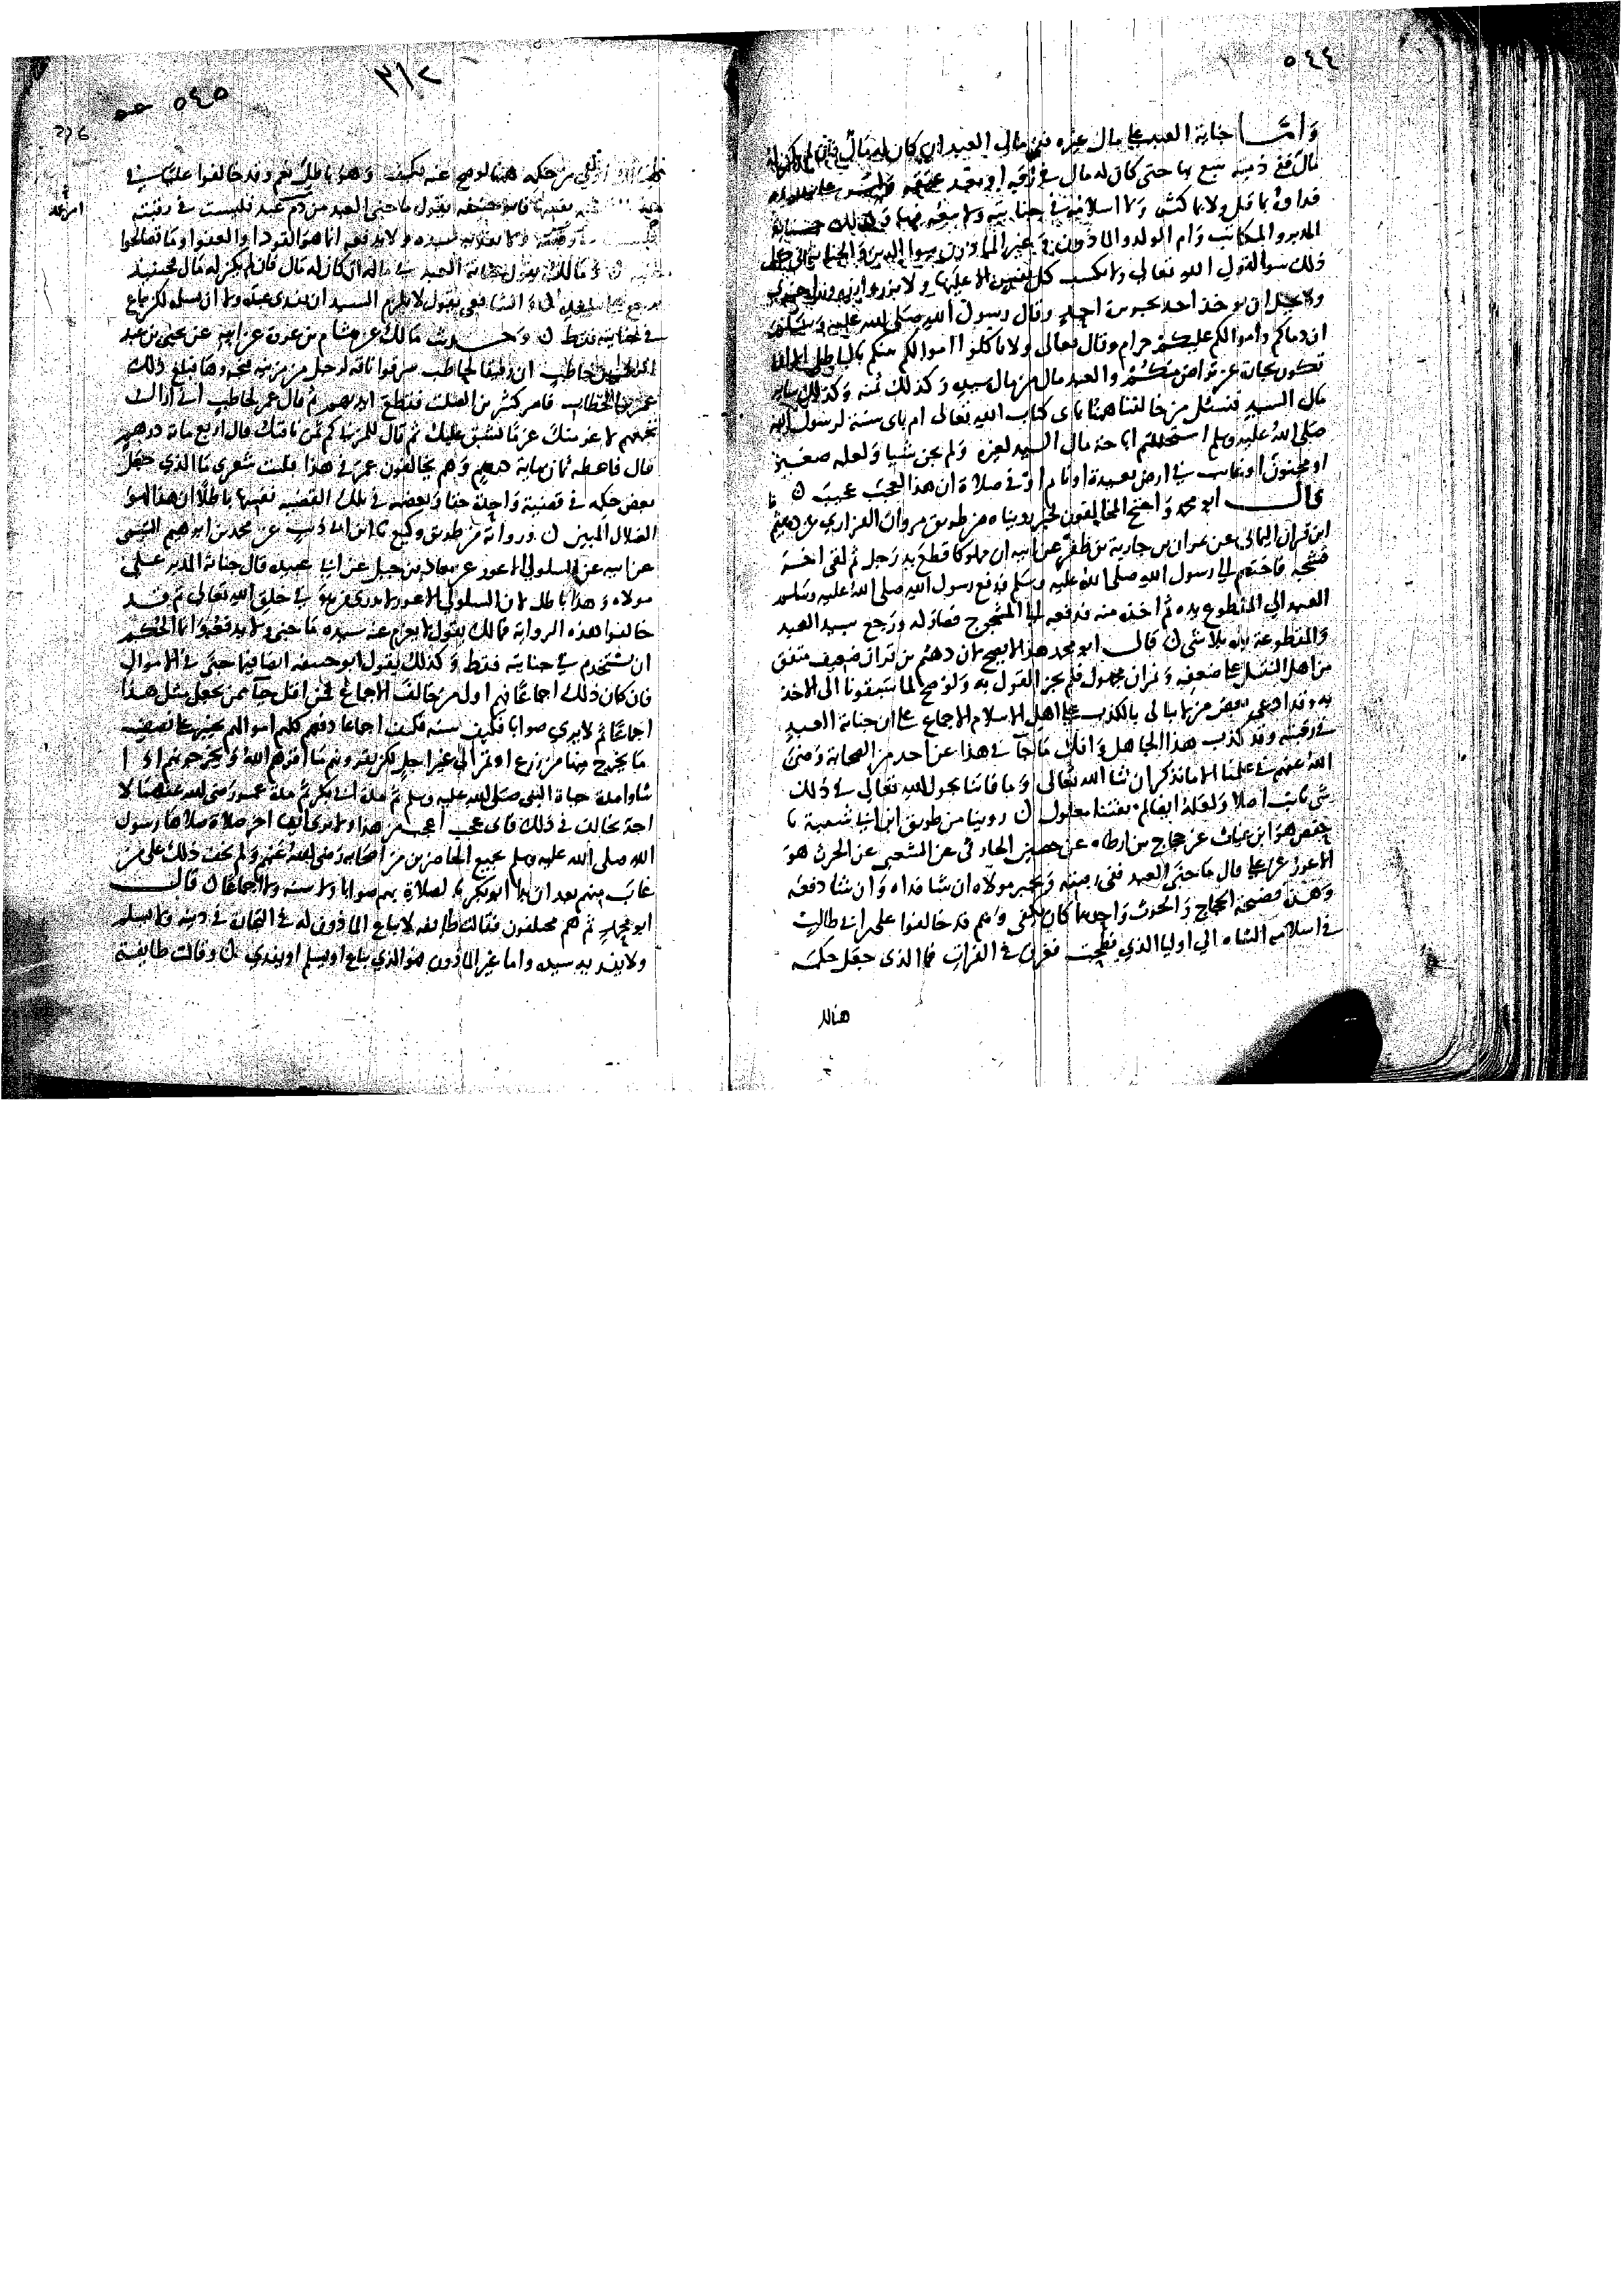 ٥٤٤
وأما جناية العبد على مال غيره ففي مال العبد إن كان له مال فإن لم يكن له
مال ففي ذمته يتبع بها حتى كان له مال في رقه أو بعد عتقه وليس على سيده
فداؤه بما قل ولا بما كثر ولا اسلامه في جنايته ولا بيعه فيها وكذلك جناية
المدبر والمكاتب وأم الولد والمأذون وغير المأذون سوا الدين والجناية في كل
ذلك سوا لقول الله تعالى ولا تكسب كل نفس الا عليها ولا تزر وازرة وزر أخرى
ولا يحل ان يوخذ احد بجريرة احد وقال رسول الله صلى الله عليه وسلم
ان دماكم وأموالكم عليكم حرام وقال تعالى ولا تاكلوا اموالكم بينكم بالباطل الا ان
تكون تجارة عن تراض منكم والعبد مال من مال سيده وكذلك ثمنه وكذلك ساير
مال السيد فنسئل من خالفنا هنا باي كتاب الله تعالى ام باي سنة لرسول الله
صلى الله عليه وسلم استحللتم اباحة مال السيد لغيره ولم يجن شيا ولعله صغير
او مجنون او غايب في ارض بعيدة او نايم او في صلاة ان هذا لعجب عجيب ن
قال ابو محمد واحتج المخالفون بخبر رويناه من طريق مروان الفزاري عن دهثم
ابن قران اليماني عن نمران بن جارية بن ظفر عن ابيه ان مملوكا قطع يد رجل ثم لقى اخر
فشجه فاختصم الى رسول الله صلى الله عليه وسلم فدفع رسول الله صلى الله عليه وسلم
العبد الي المقطوع يده ثم اخذه منه فدفعه الى المشجوج فصار له ورجع سيد العبد
والمقطوعة يده بلا شي ن قال ابو محمد هذا لا يصح لان دهثم بن قران ضعيف متفق
من اهل النقل على ضعفه ونمران مجهول فلم يجز القول به ولو صح لما سبقونا الى الاخذ
به وقد ادعي بعض من لا يبالي بالكذب على اهل الاسلام الاجماع على ان جناية العبد
في رقبته وقد كذب هذا الجاهل وافك ما جآ في هذا عن احد من الصحابة رضي
الله عنهم في علمنا الا ما نذكر ان شا الله تعالى
شي ثابت اصلا ن روينا من طريق ابن ابي شيبة نا
حفص هو ابن غياث عن حجاج بن ارطاه عن حصين الحارثي عن الشعبي عن الحرث هو
الاعور عن علي قال ما جنى العبد ففي رقبته ويخير مولاه ان شا فداه وان شا دفعه
وهذه فضيحة الحجاج والحرث واحدهما كان يكفى وهم قد خالفوا على بن ابي طالب
في اسلامه الشاه الي اوليا الذي نطحت ففرق في الغرات فما الذى جعل حكمه
هناك
٥٤٥
٣١٢
من حكمه هنا لو صح عنه فكيف وهو باطل نعم وقد خالفوا عليا في
فابو حنيفه يقول ما جنى العبد من دم عبد فليست في رقبته
ولا يدفعه انما هو القود او العفو او ما تصالحوا
ومالك يقول جناية العبد في ماله ان كان له مال فان لم يكن له مال فحينيذ
والشافعي يقول لا يلزم السيد ان يفدى عبده ولا ان يسلمه لكن يباع
في جنايته فقط ن وحديث مالك عن هشام بن عروة عن ابيه عن يحيى بن عبد
الرحمن بن حاطب ان رقيقا لحاطب سرقوا ناقه لرجل من مزينه فنحروها فبلغ ذلك
عمر بن الخطاب فامر كثير بن الصلت فقطع ايديهم ثم قال عمر لحاطب اني اراك
تجيعهم لاغرمنك غرما يشق عليك ثم قال للمزني كم ثمن ناقتك قال اربع ماية درهم
قال فاعطه ثمان ماية درهم وهم يخالفون عمر في هذا فليت شعرى ما الذي جعل
بعض حكمه في قضية واحدة حقا وبعضه في تلك القضيه نفسها باطلا ان هذا لهو
الضلال المبين ن ورواية من طريق وكيع نا ابن ابي ذيب عن محمد بن ابرهيم التيمى
عن ابيه عن السلولي الاعور عن معاذ بن جبل عن ابي عبيده قال جناية المدبر على
مولاه وهذا باطل لان السلولي الاعور لا يدرى من هو في خلق الله تعالى ثم قد
خالفوا هذه الرواية فمالك يقول لا يغرم عنه سيده ما جنى ولا يدفعه وانما الحكم
ان يستخدم في جنايته فقط وكذلك يقول ابو حنيفه ايضا فيما جنى في الاموال
فان كان ذلك اجماعا فهم اول من خالف الاجماع فمن اقل حيآ ممن يجعل مثل هذا
اجماعا ثم لا يري صوابا فكيف سنه فكيف اجماعا دفعهم كلهم اموالهم بخيبر على نصف
ما يخرج منها من زرع او ثمر الي غير اجل لكن يقرونهم ما اقرهم الله ويخرجونهم اذا
شاوا مدة حياة النبى صلى الله عليه وسلم ثم مدة ابي بكر ثم مدة عمر رضى الله عنهما لا
احد يخالف في ذلك فاى عجب اعجب من هذا ولا يرى ايضا اخر صلاة صلاها رسول
الله صلى الله عليه وسلم بجميع الحاضرين من اصحابه رضى الله عنهم ولم يخف ذلك على من
غاب منهم بعد ان بدا ابو بكر بالصلاة بهم صوابا ولا سنه ولا اجماعا ن قال
ابو محمد ثم هم مختلفون فقالت طايفه لا يباع الماذون له في التجارة في دينه ولا يسلم
ولا يفديه سيده واما غير الماذون فهو الذي يباع او يسلم او يفدي ن وقالت طايفة